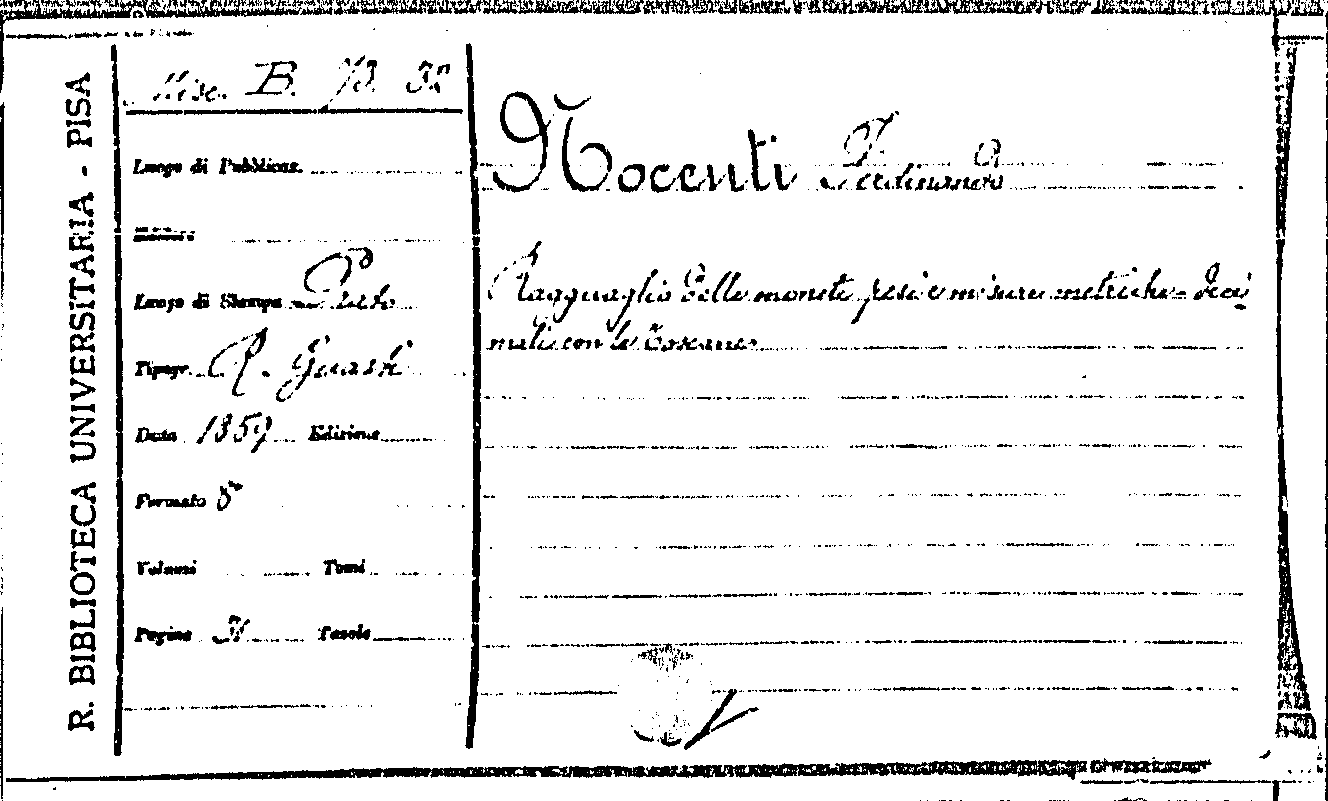 R. BIBLIOTECA UNIVERSITARIA - PISA
Misc. B.
Luogo di Pubblicaz.
Luogo di Stampa Prato
Tipogr. R. Guasti
Data 1859 Edizione
Formato 8°
Volumi Tomi
Pagine Tavole
Nocenti Ferdinando
Ragguaglio delle monete, pesi e misure metriche-deci
mali con le Toscane